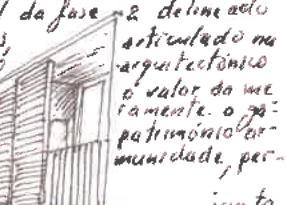 da fase 2 delineado
articulado na
arquitectónico
o valor da me
ramente. o
património
munidade, per-